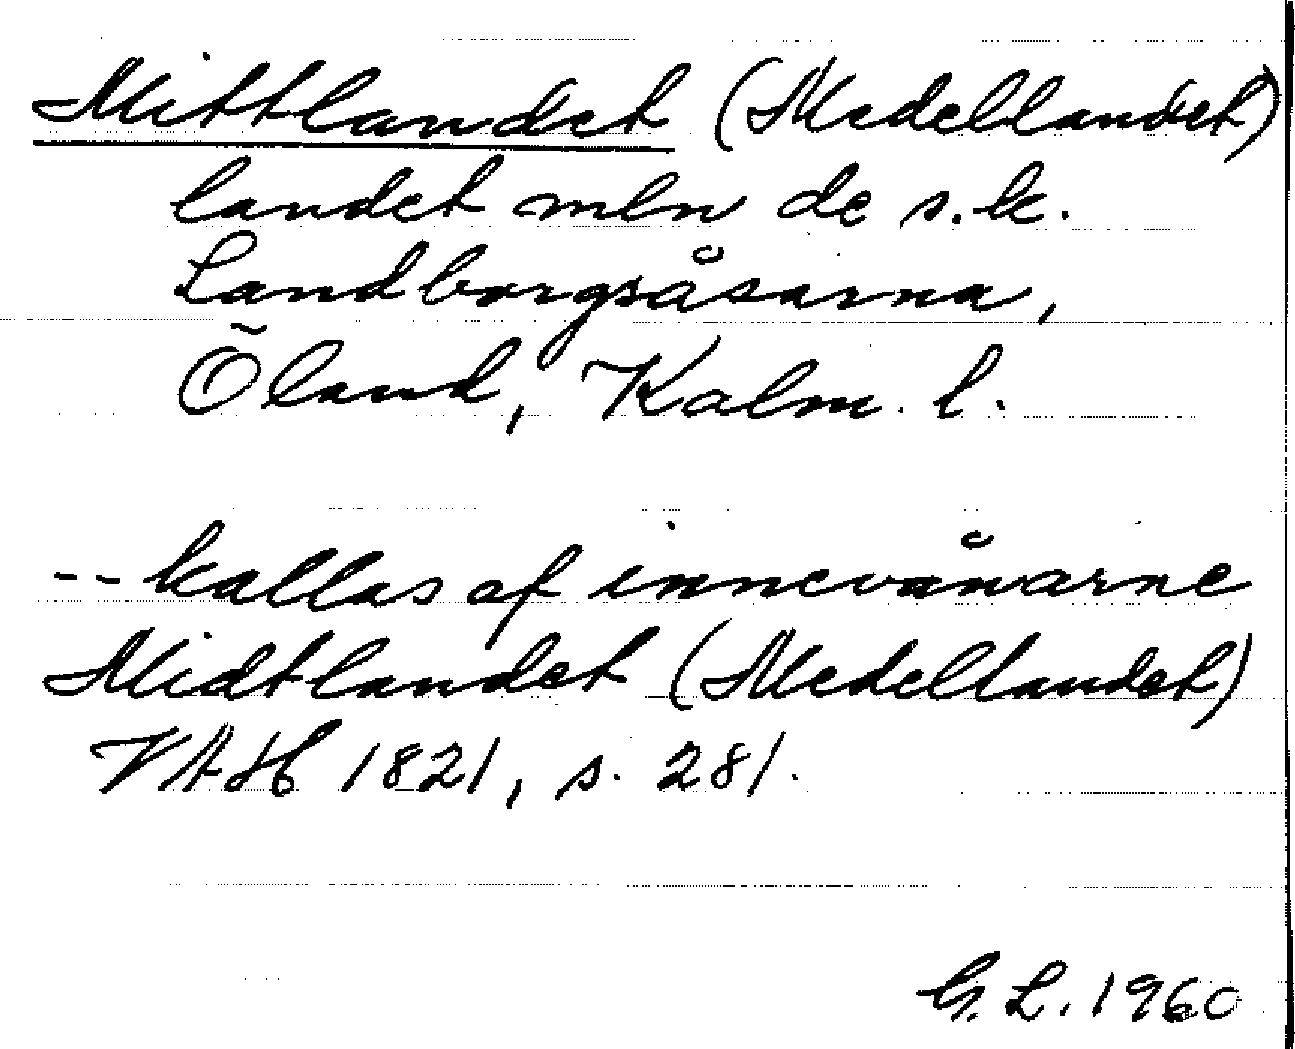 Mittlandet (Medellandet)
landet mln de s.k.
Landborgsåsarna,
Öland, Kalm. l.
-- kallas af innevånarne
Midtlandet (Medellandet)
VAH 1821, s. 281.
G. L. 1960